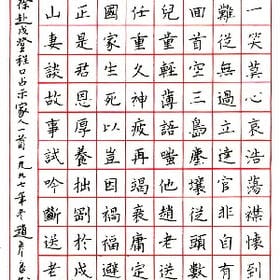 一笑莫心哀浩蕩襟懷到
難從無過立達官非自有
回首空三島塵壤從頭數
兒童輕薄語嗤他趙老送
任重久神疲再竭衰庸定
國家生死以豈因禍福避
正是君恩厚養拙剛於戍
山妻談故事試吟斷送老
徐赴戍登程口占示家人一首一九九七年冬趙